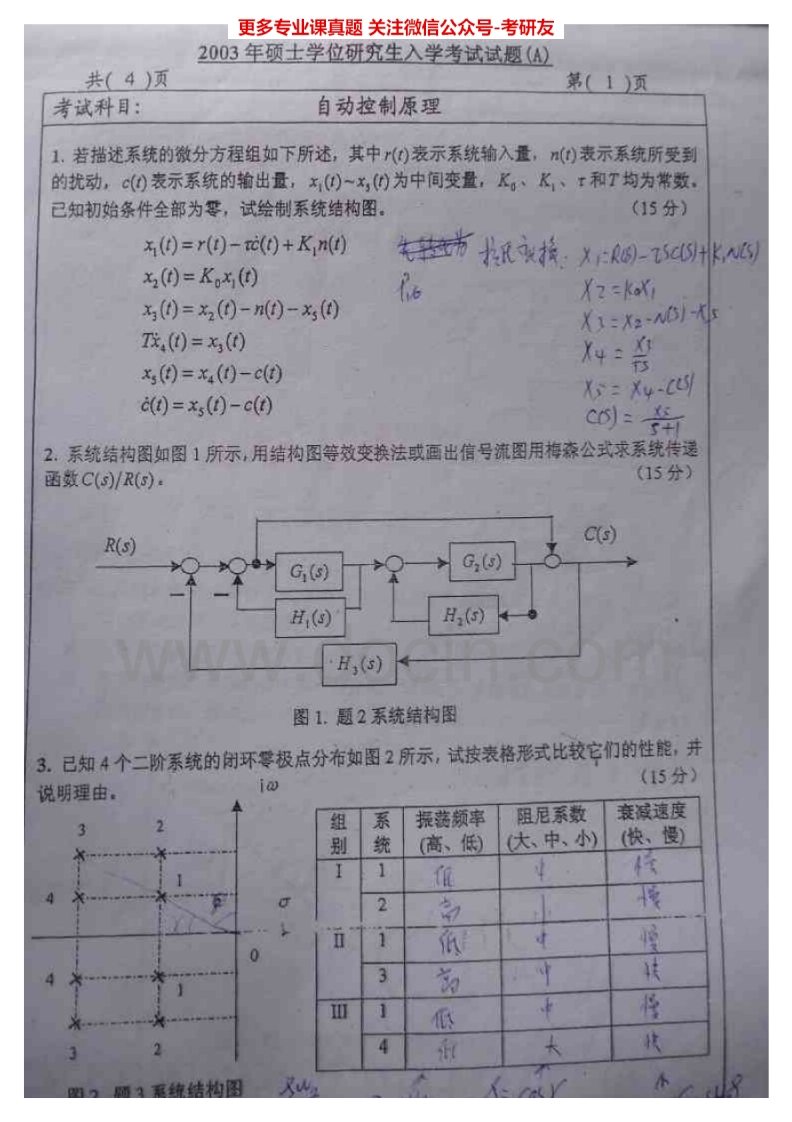 更多专业课真题 关注微信公众号-考研友
2003 年硕士学位研究生入学考试试题(A)
共( 4 )页 第( 1 )页
考试科目: 自动控制原理
1. 若描述系统的微分方程组如下所述，其中r(t)表示系统输入量，n(t)表示系统所受到
的扰动，c(t)表示系统的输出量，x₁(t)~x₅(t)为中间变量，K₀、K₁、τ和T均为常数。
已知初始条件全部为零，试绘制系统结构图。 (15 分)
x₁(t) = r(t) − τċ(t) + K₁n(t) 拉氏变换. X₁=R(S)−τSC(S)+K₁N(S)
x₂(t) = K₀x₁(t) X₂=K₀X₁
x₃(t) = x₂(t) − n(t) − x₅(t) X₃=X₂−N(S)−X₅
Tẋ₄(t) = x₃(t) X₄ = X₃/TS
x₅(t) = x₄(t) − c(t) X₅ = X₄−C(S)
ċ(t) = x₅(t) − c(t) C(S) = X₅/S+1
2. 系统结构图如图 1 所示，用结构图等效变换法或画出信号流图用梅森公式求系统传递
函数C(s)/R(s)。 (15 分)
R(s) C(s)
G₁(s) G₂(s)
− −
H₁(s) H₂(s)
H₃(s)
www.docin.com
图 1. 题 2 系统结构图
3. 已知 4 个二阶系统的闭环零极点分布如图 2 所示，试按表格形式比较它们的性能，并
说明理由。 (15 分)
iω
3 2
1
4
σ
0
4
1
3 2
组别 系统 振荡频率(高、低) 阻尼系数(大、中、小) 衰减速度(快、慢)
I 1 低 中 慢
2 高 小 慢
II 1 低 中 慢
3 高 中 快
III 1 低 中 慢
4 大 快
图 2. 题 3 系统结构图